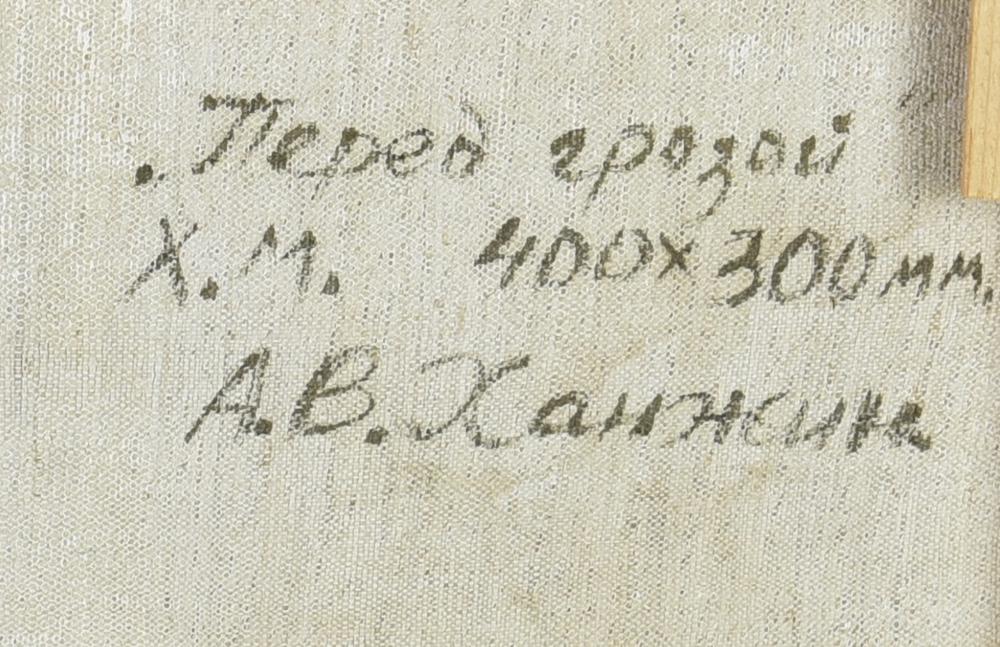 „Перед грозой"
Х.М. 400х300мм.
А.В.Ханжин